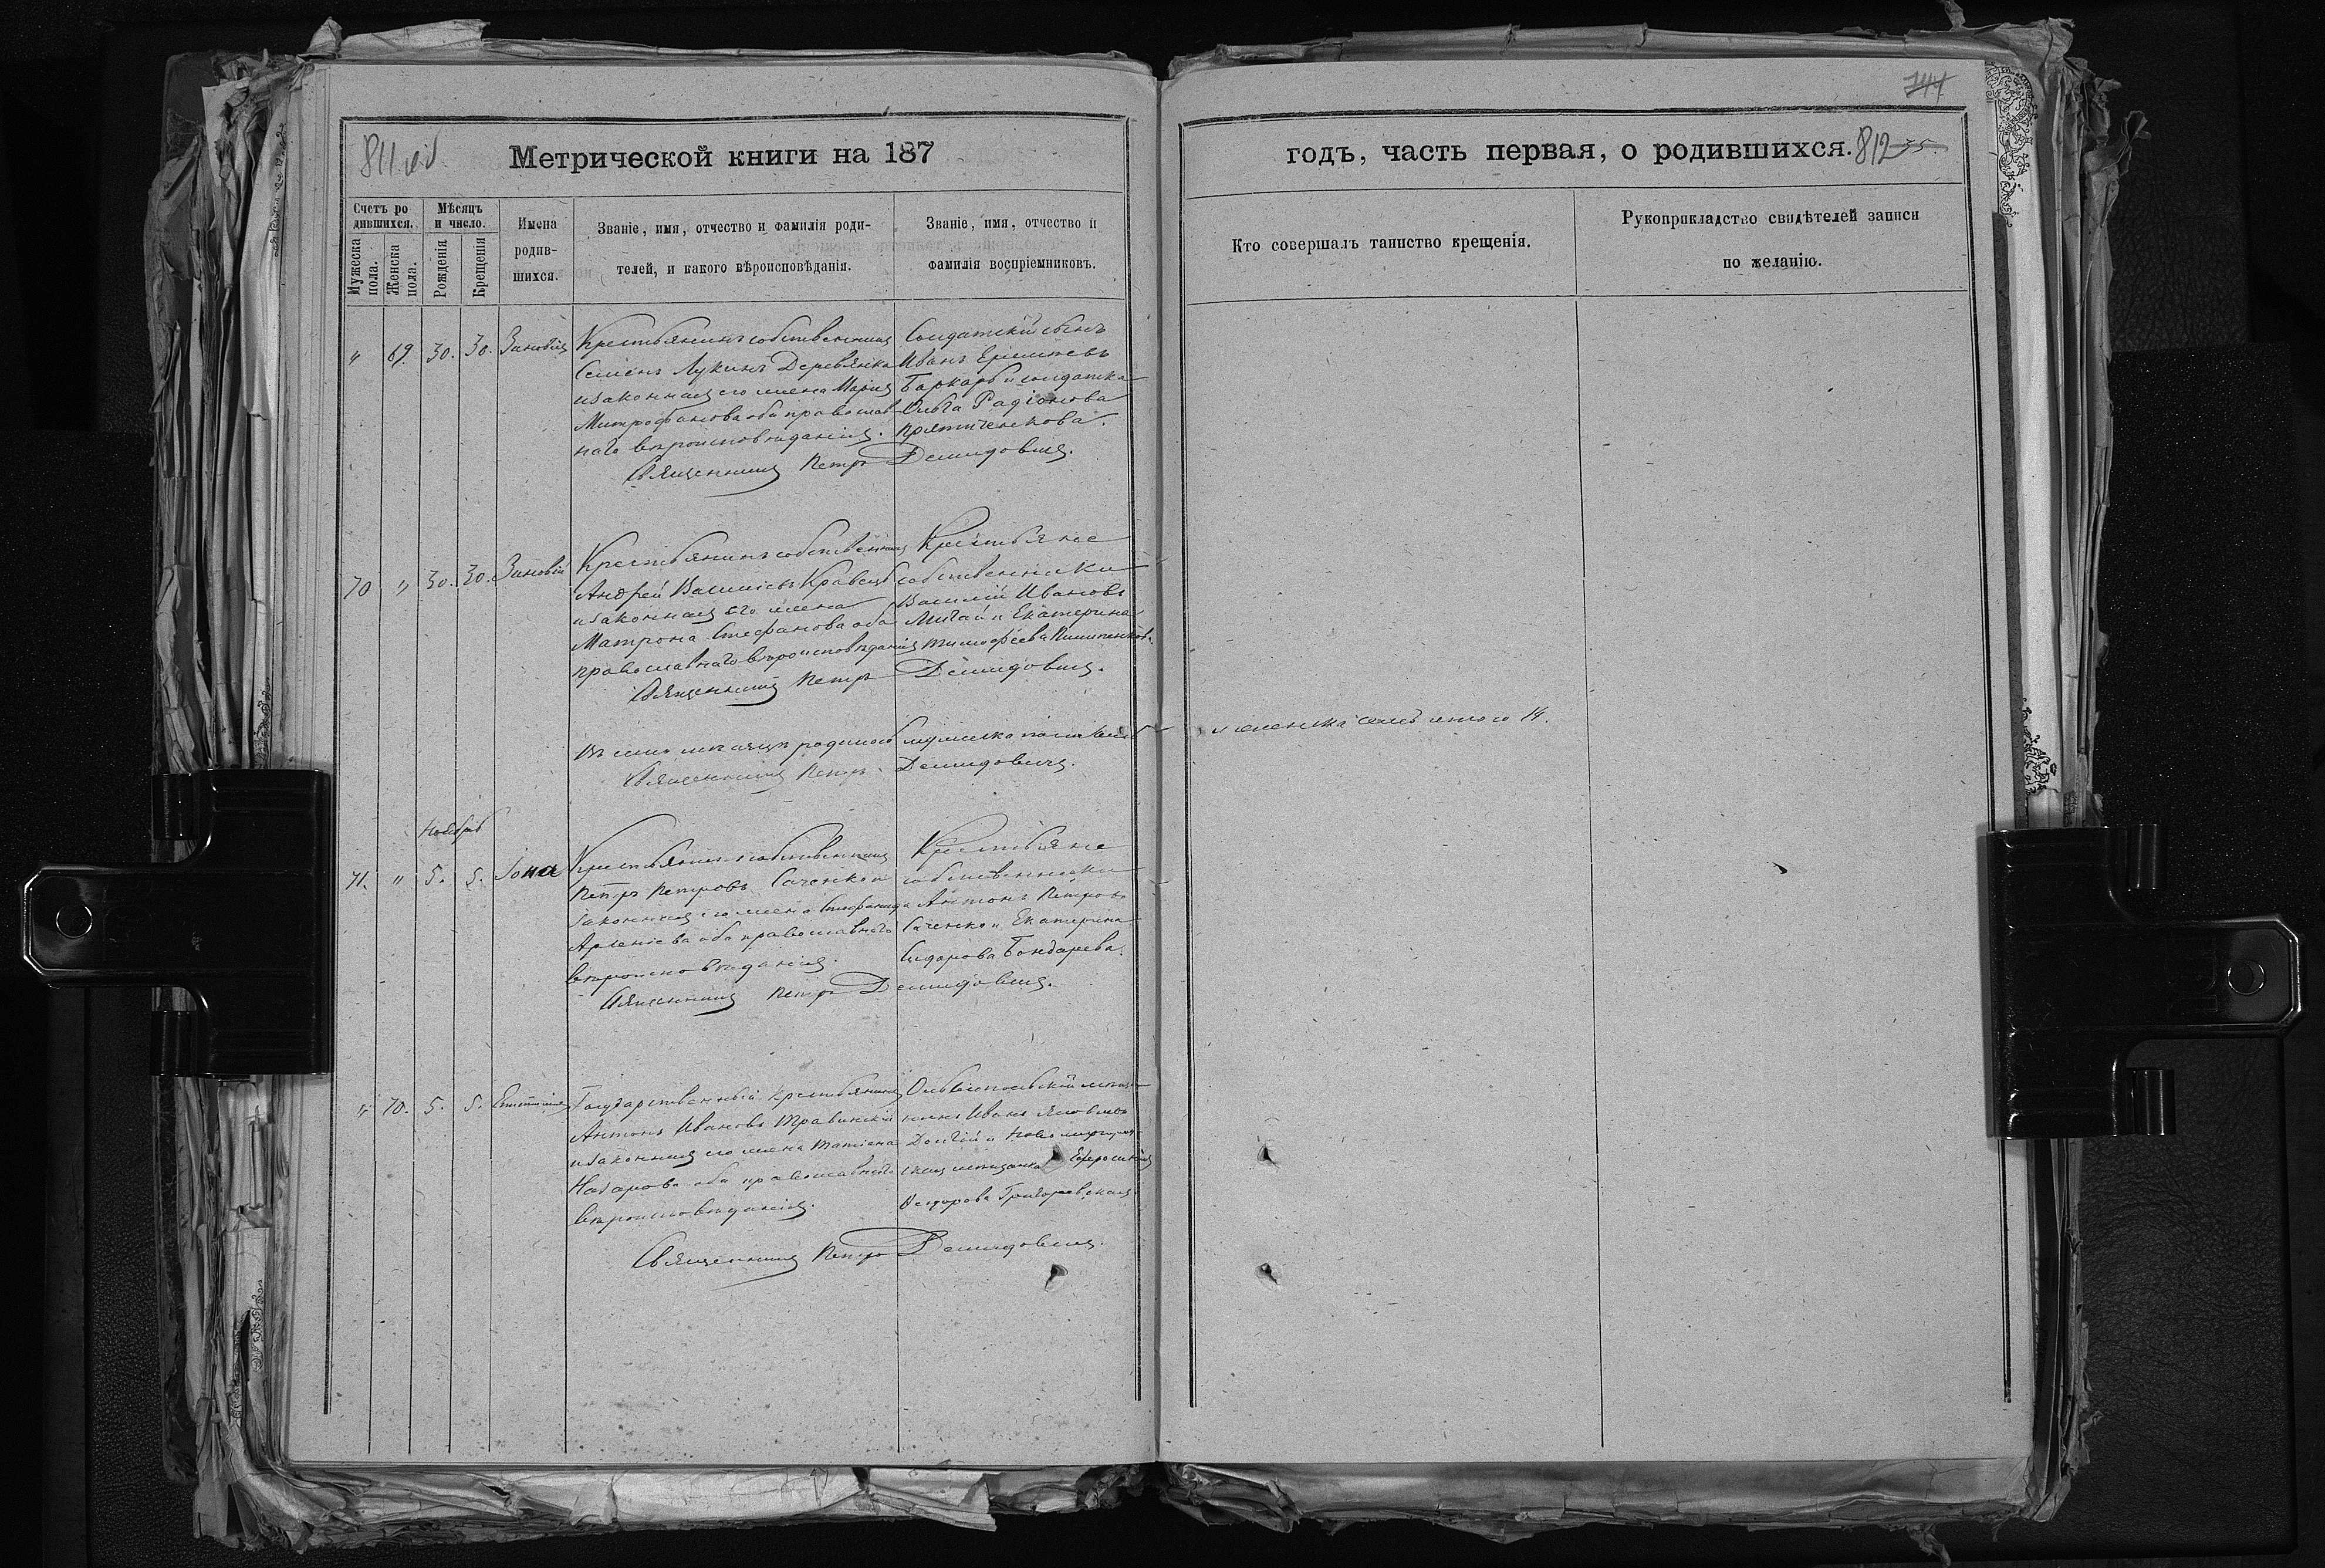 144
811 об
Метрической книги на 187
годъ, часть первая, о родившихся. 812 35.
Счетъ родившихся.
Мужеска пола.
Женска пола.
Мѣсяцъ и число.
Рожденія
Крещенія
Имена родившихся.
Званіе, имя, отчество и фамилія родителей, и какого вѣроисповѣданія.
Званіе, имя, отчество и фамилія воспріемниковъ.
Кто совершалъ таинство крещенія.
Рукоприкладство свидѣтелей записи по желанію.
" 69. 30. 30. Зиновія
Крестьянинъ собственникъ
Семенъ Лукинъ Деревянко
и законная его жена Марія
Митрофанова оба православ
наго вѣроисповѣданія.
Солдатскій сынъ
Иванъ
и солдатка
Ольга Радіонова
Священникъ Петръ Демидовичъ.
70 " 30. 30. Зиновій
Крестьянинъ собственникъ
Андрей Василіевъ Кравецъ
и законная его жена
Матрона Стефанова оба
православнаго вѣроисповѣданія
Крестьяне
собственники
Василій Ивановъ
и Екатерина
Тимофѣева
Священникъ Петръ Демидовичъ.
Въ семъ мѣсяцѣ родилось мужеска пола семь
и женска семь итого 14.
Священникъ Петръ Демидовичъ.
Ноябрь
71. " 5. 5. Іона
Крестьянинъ собственникъ
Петръ Петровъ Саченко и
законная его жена Стефанида
Арсеніева оба православнаго
вѣроисповѣданія.
Крестьяне
собственники
Антонъ Петровъ
Саченко и Екатерина
Сидорова Бондарева.
Священникъ Петръ Демидовичъ.
" 70. 5. 5.
Государственный крестьянинъ
Антонъ Ивановъ Травинскій
и законная его жена Татіана
Назарова оба православнаго
вѣроисповѣданія.
Ольвіопольскій мѣща
нинъ Иванъ Яковлевъ
Долгій и Новомиргород
ская мѣщанка Ефросинія
Ѳедорова Григоревская
Священникъ Петръ Демидовичъ.